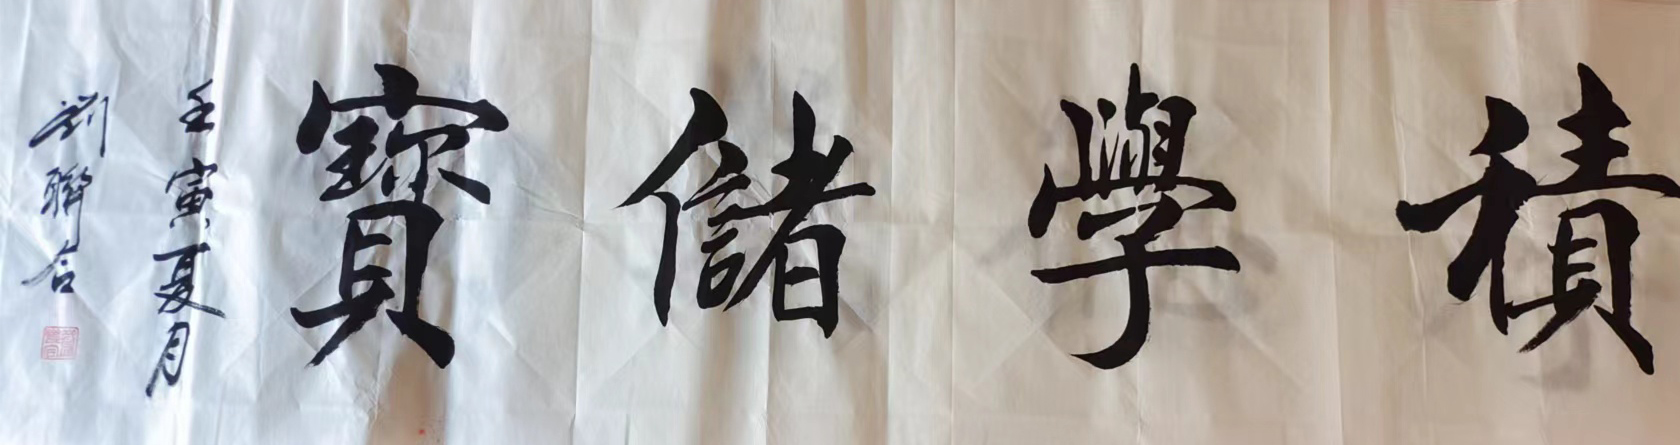 積學儲寶
壬寅夏月
劉聯合